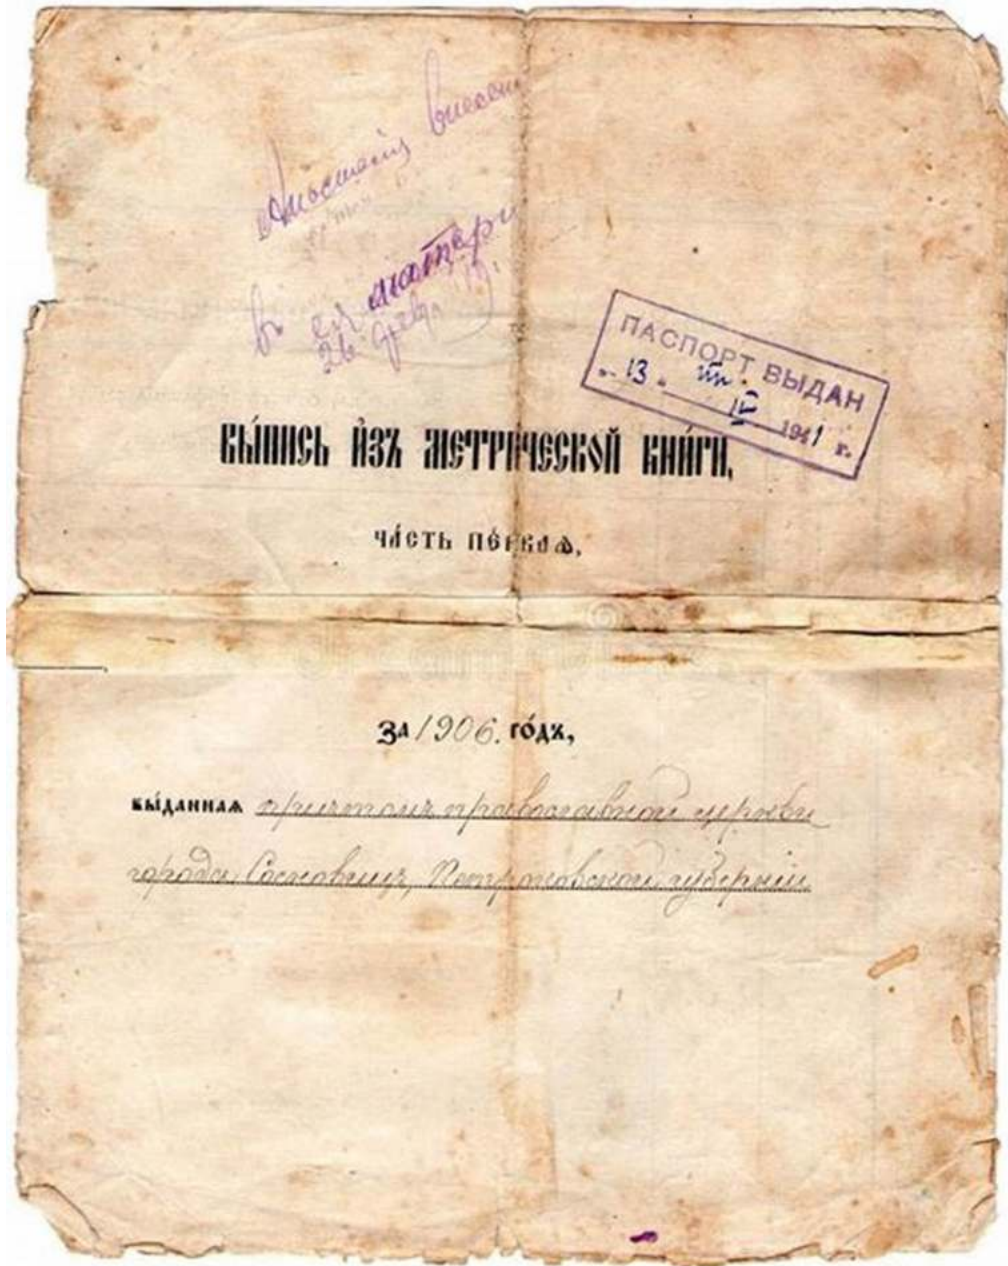 въ ея матери
ПАСПОРТ ВЫДАН
"13" IV 1941 г.
ВЫ́ПИСЬ И҆ЗЪ МЕТРИ́ЧЕСКОЙ КНИ́ГИ,
ЧА́СТЬ ПЕ́РВАѦ,
ЗА 1906. ГО́ДЪ,
ВЫ́ДАННАѦ причтомъ православной церкви
города Сосновицъ, Петроковской губерніи